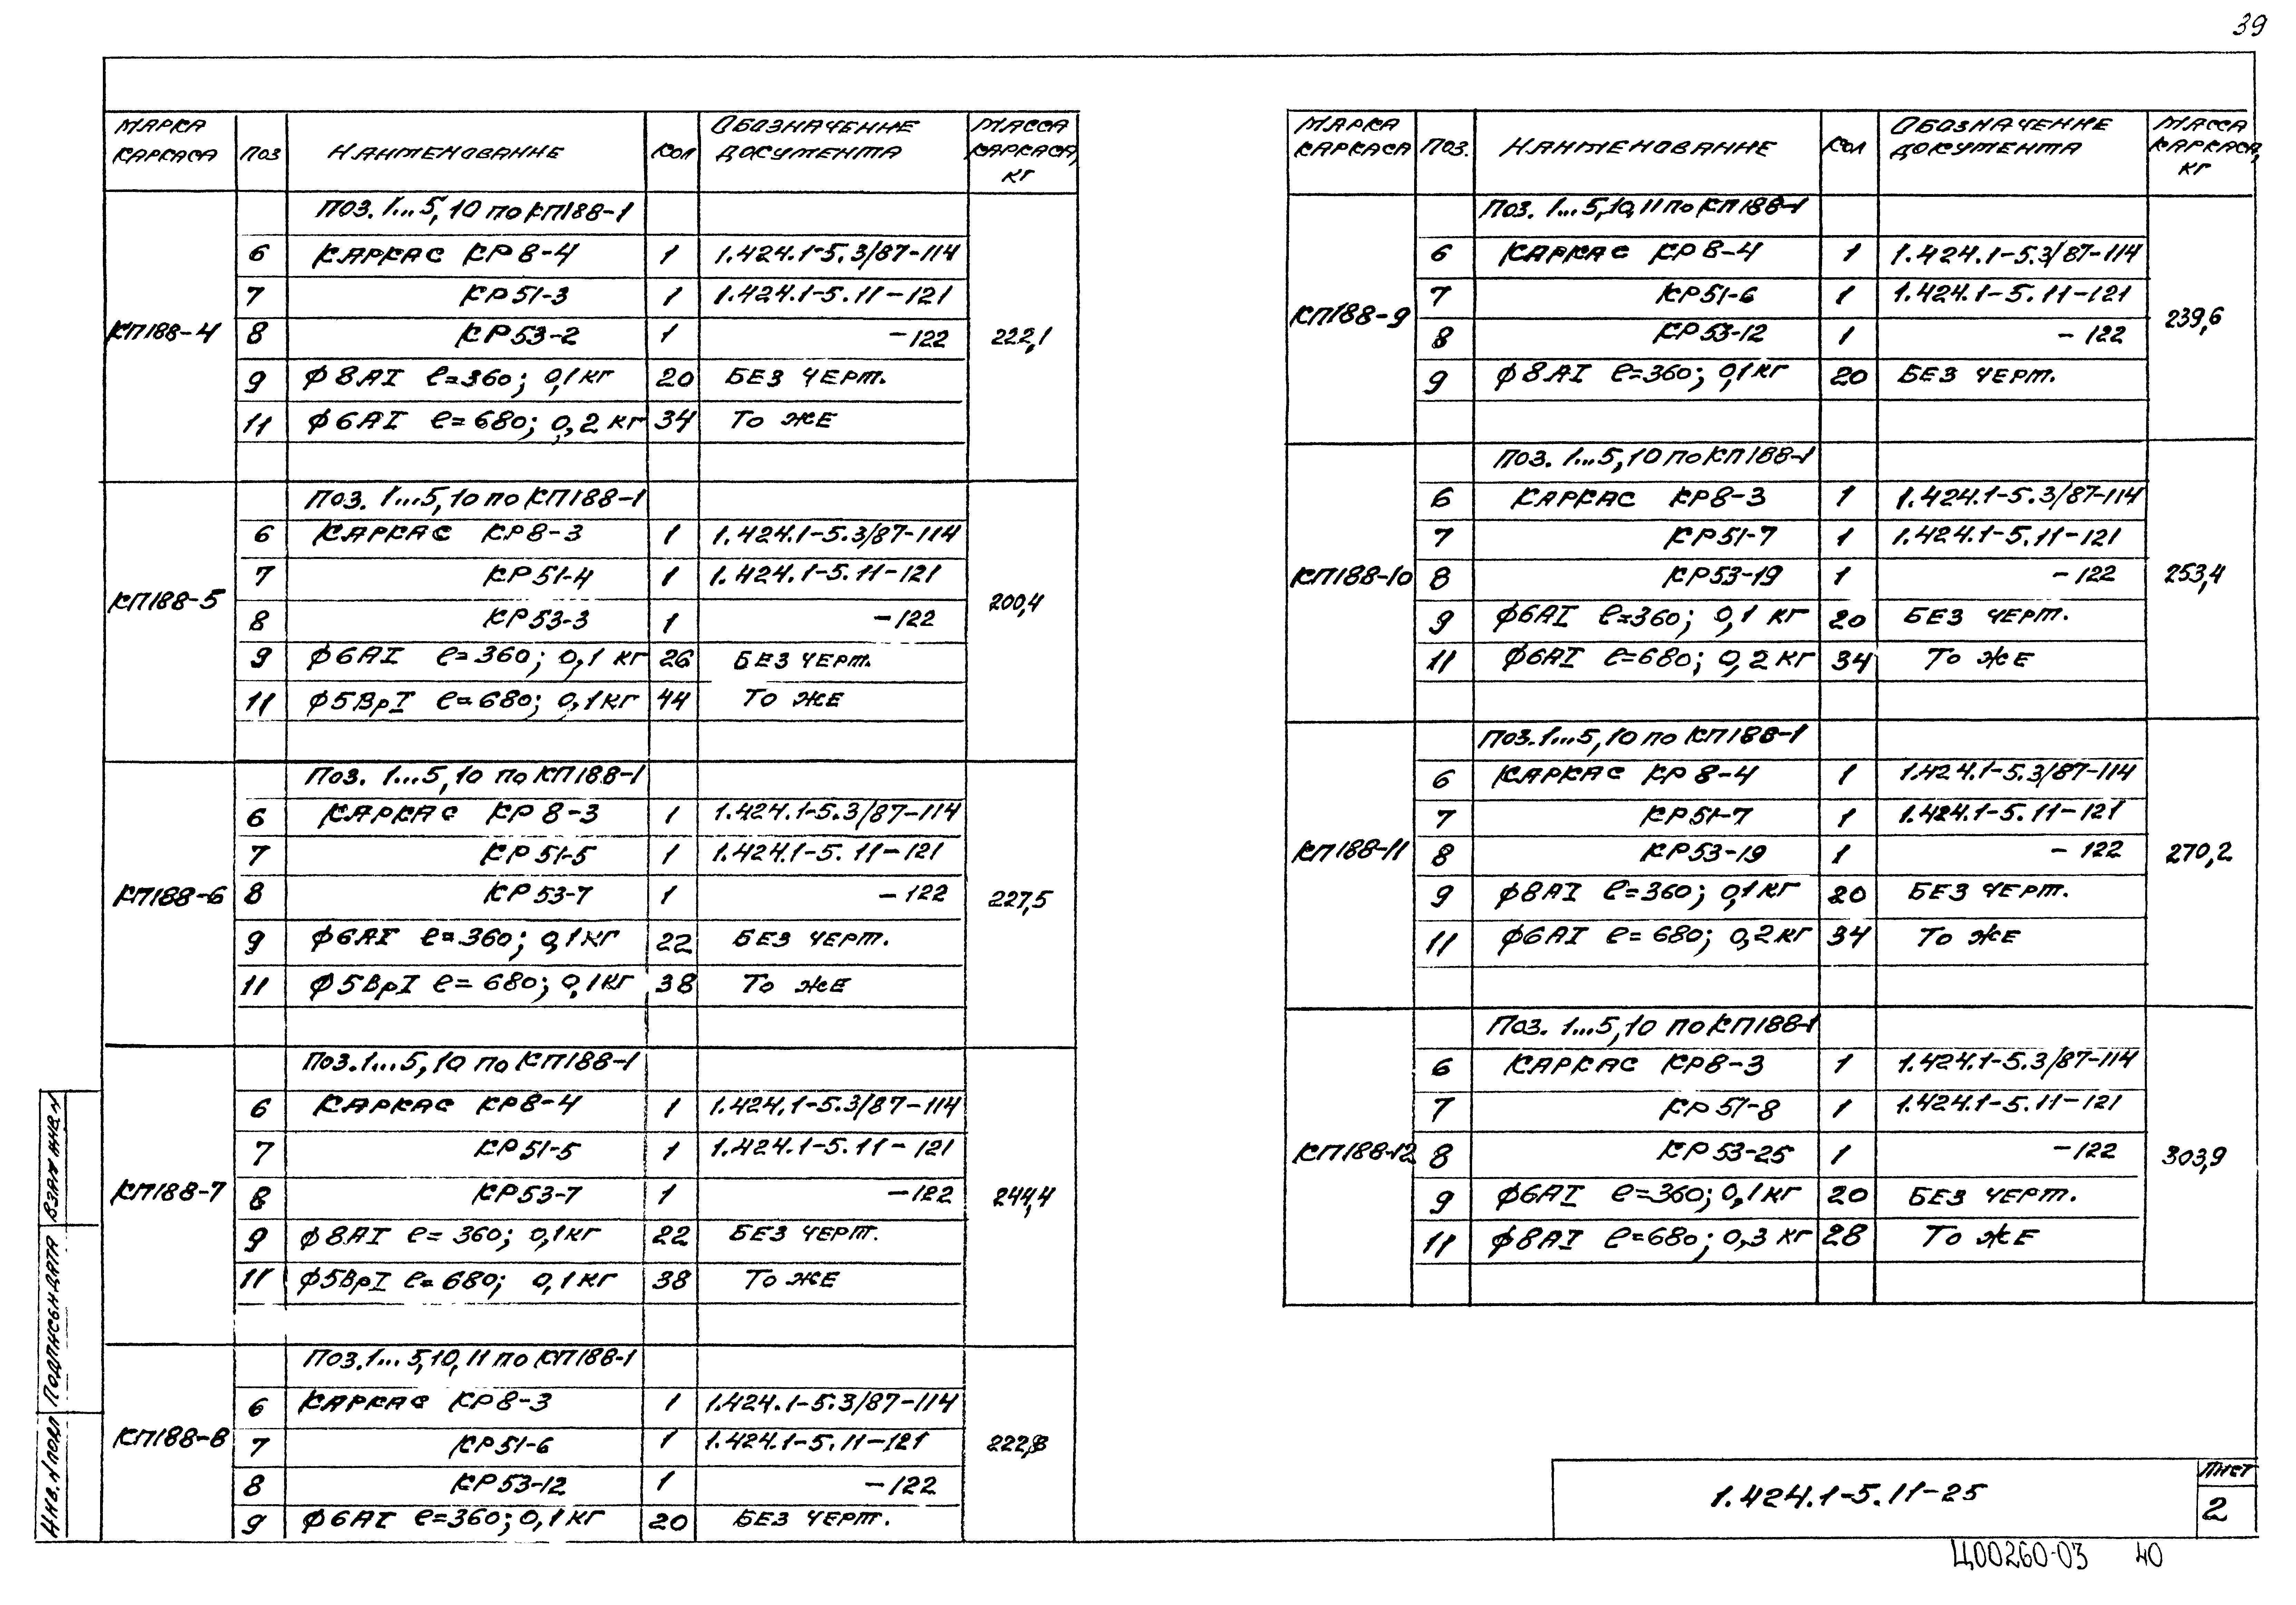 39
МАРКА КАРКАСА ПОЗ НАИМЕНОВАНИЕ КОЛ ОБОЗНАЧЕНИЕ ДОКУМЕНТА МАССА КАРКАСА, КГ
КП188-4 222,1
ПОЗ. 1...5, 10 ПО КП188-1
6 КАРКАС КР8-4 1 1.424.1-5.3/87-114
7 КР51-3 1 1.424.1-5.11-121
8 КР53-2 1 -122
9 ф8АI ℓ=360; 0,1 КГ 20 БЕЗ ЧЕРТ.
11 ф6АI ℓ=680; 0,2 КГ 34 ТО ЖЕ
КП188-5 200,4
ПОЗ. 1...5, 10 ПО КП188-1
6 КАРКАС КР8-3 1 1.424.1-5.3/87-114
7 КР51-4 1 1.424.1-5.11-121
8 КР53-3 1 -122
9 ф6АI ℓ=360; 0,1 КГ 26 БЕЗ ЧЕРТ.
11 ф5ВрI ℓ=680; 0,1 КГ 44 ТО ЖЕ
КП188-6 227,5
ПОЗ. 1...5, 10 ПО КП188-1
6 КАРКАС КР8-3 1 1.424.1-5.3/87-114
7 КР51-5 1 1.424.1-5.11-121
8 КР53-7 1 -122
9 ф6АI ℓ=360; 0,1 КГ 22 БЕЗ ЧЕРТ.
11 ф5ВрI ℓ=680; 0,1 КГ 38 ТО ЖЕ
КП188-7 244,4
ПОЗ. 1...5, 10 ПО КП188-1
6 КАРКАС КР8-4 1 1.424.1-5.3/87-114
7 КР51-5 1 1.424.1-5.11-121
8 КР53-7 1 -122
9 ф8АI ℓ=360; 0,1 КГ 22 БЕЗ ЧЕРТ.
11 ф5ВрI ℓ=680; 0,1 КГ 38 ТО ЖЕ
КП188-8 222,8
ПОЗ. 1...5, 10, 11 ПО КП188-1
6 КАРКАС КР8-3 1 1.424.1-5.3/87-114
7 КР51-6 1 1.424.1-5.11-121
8 КР53-12 1 -122
9 ф6АI ℓ=360; 0,1 КГ 20 БЕЗ ЧЕРТ.
МАРКА КАРКАСА ПОЗ. НАИМЕНОВАНИЕ КОЛ ОБОЗНАЧЕНИЕ ДОКУМЕНТА МАССА КАРКАСА, КГ
КП188-9 239,6
ПОЗ. 1...5, 10, 11 ПО КП188-1
6 КАРКАС КР8-4 1 1.424.1-5.3/87-114
7 КР51-6 1 1.424.1-5.11-121
8 КР53-12 1 -122
9 ф8АI ℓ=360; 0,1 КГ 20 БЕЗ ЧЕРТ.
КП188-10 253,4
ПОЗ. 1...5, 10 ПО КП188-1
6 КАРКАС КР8-3 1 1.424.1-5.3/87-114
7 КР51-7 1 1.424.1-5.11-121
8 КР53-19 1 -122
9 ф6АI ℓ=360; 0,1 КГ 20 БЕЗ ЧЕРТ.
11 ф6АI ℓ=680; 0,2 КГ 34 ТО ЖЕ
КП188-11 270,2
ПОЗ. 1...5, 10 ПО КП188-1
6 КАРКАС КР8-4 1 1.424.1-5.3/87-114
7 КР51-7 1 1.424.1-5.11-121
8 КР53-19 1 -122
9 ф8АI ℓ=360; 0,1 КГ 20 БЕЗ ЧЕРТ.
11 ф6АI ℓ=680; 0,2 КГ 34 ТО ЖЕ
КП188-12 303,9
ПОЗ. 1...5, 10 ПО КП188-1
6 КАРКАС КР8-3 1 1.424.1-5.3/87-114
7 КР51-8 1 1.424.1-5.11-121
8 КР53-25 1 -122
9 ф6АI ℓ=360; 0,1 КГ 20 БЕЗ ЧЕРТ.
11 ф8АI ℓ=680; 0,3 КГ 28 ТО ЖЕ
ИНВ. N ПОДЛ ПОДПИСЬ И ДАТА ВЗАМ ИНВ. N
1.424.1-5.11-25
ЛИСТ
2
Ц00260-03 40